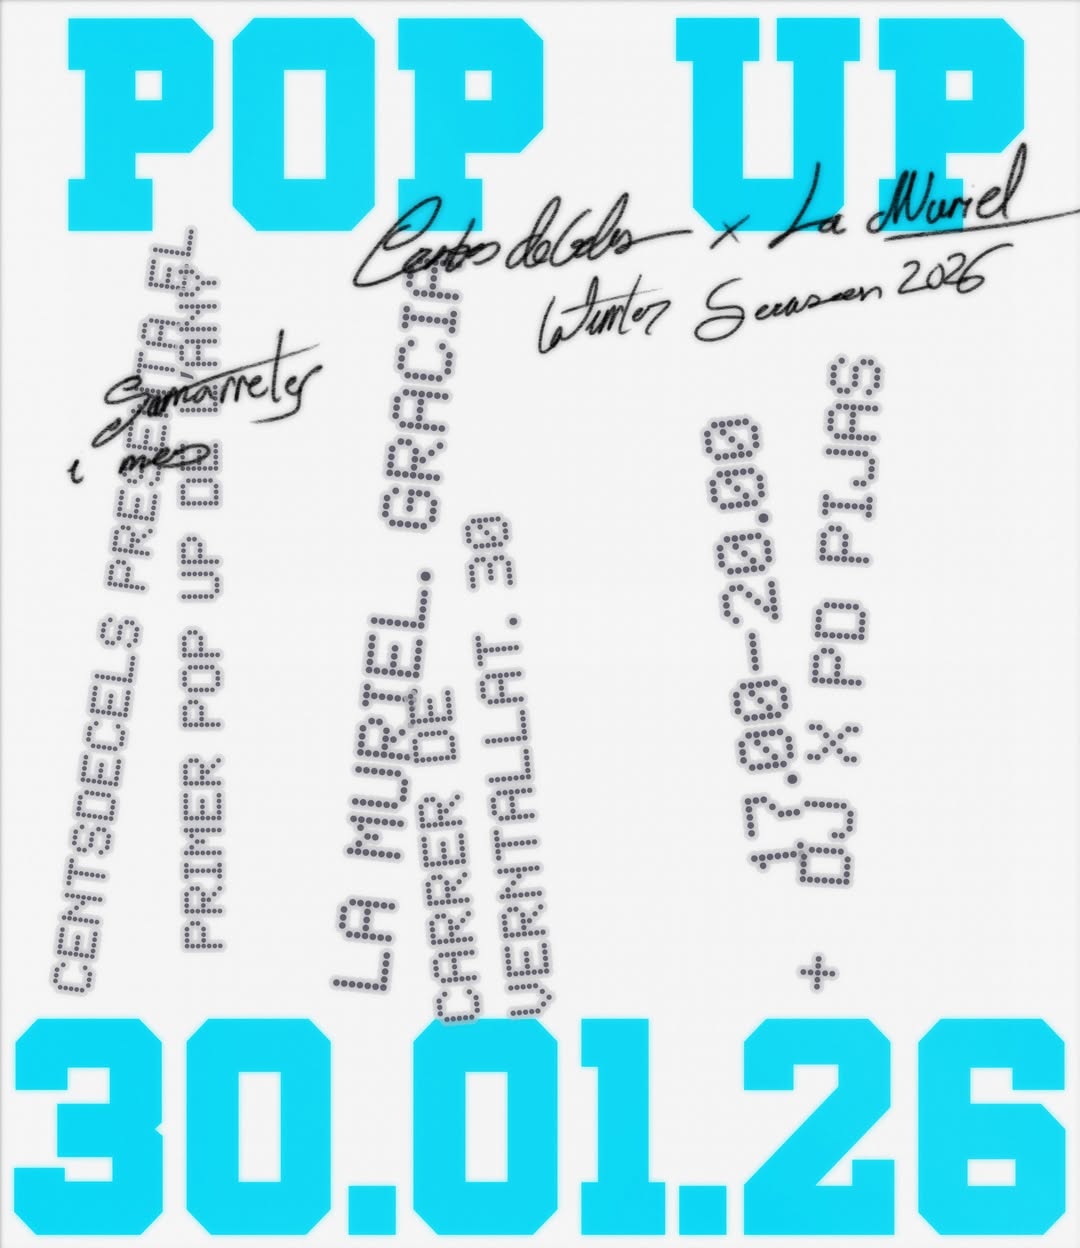 POP UP
CentsdeCels x La Muriel
Winter Season 2026
Samarretes
i més
CENTSDECELS PRESENTA EL
PRIMER POP UP DE L'ANY
LA MURIEL. GRACIA
CARRER DE
VERNTALLAT. 30
17.00-20.00
+ DJ X PD PIJAS
30.01.26